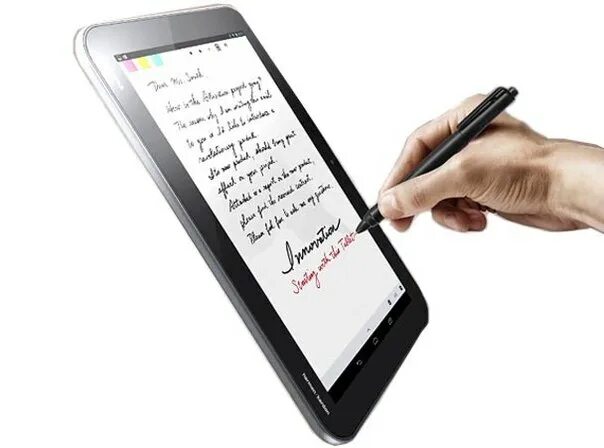 Dear Mr. Smith
How is the Attraction project going?
The reason why I am writing this mail
to you is I'd like to introduce a
revolutionary product.
This new product, should bring great
effect on your project.
Attached is a report on the new product,
please find the 
Please feel free to ask me any questions.
Innovation
Starting with this Tablet
harman/kardon